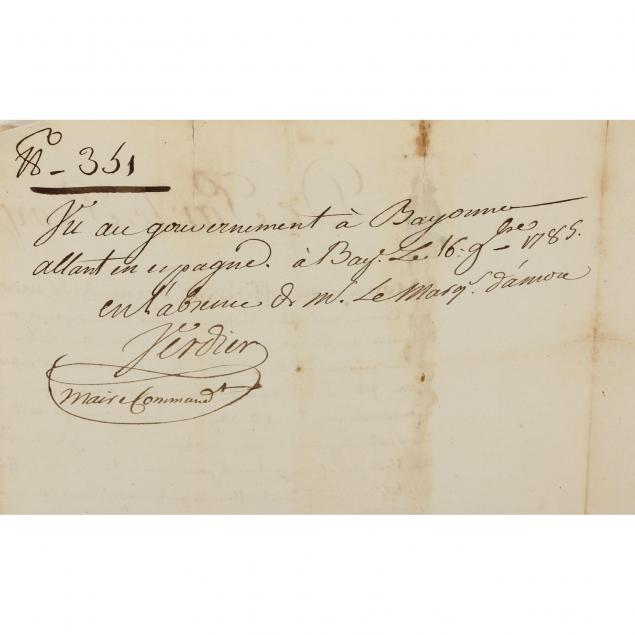 N° - 351
Vu au gouvernement à Bayonne
allant en espagne. à Bay.^e Le 16. 9^bre 1785.
en l'absence de m.^r Le Marq.^s d'amou
Verdier
Maire Command.^t